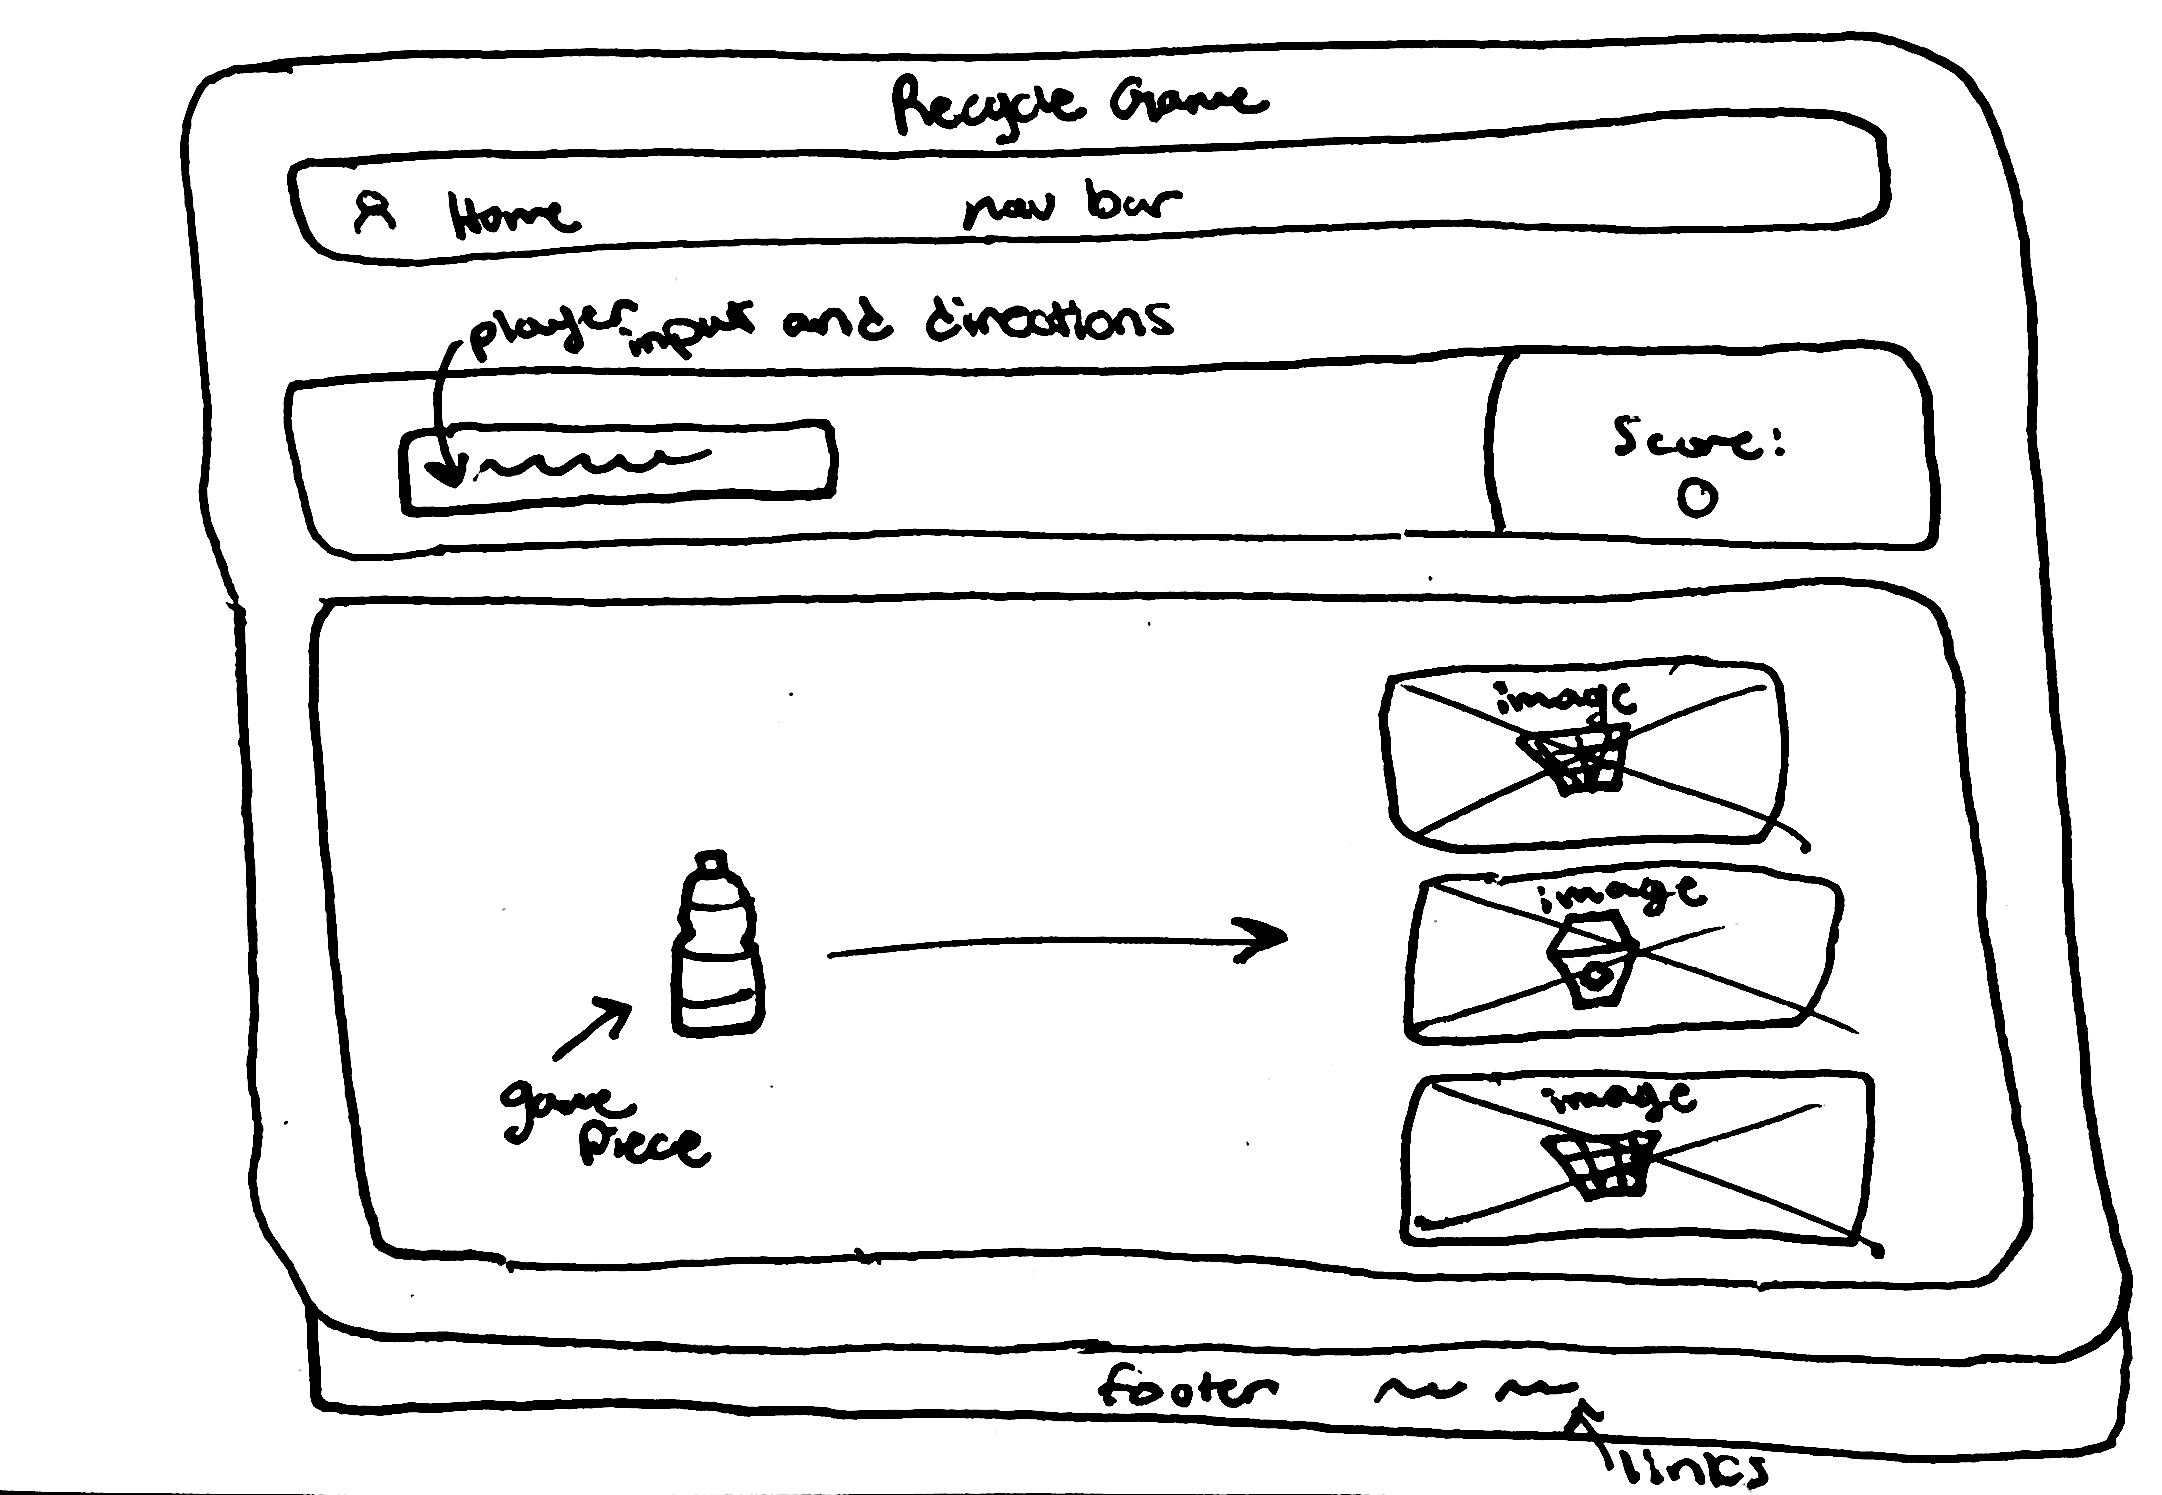 Recycle Game
Home
nav bar
player input and directions
Score:
0
image
image
game
piece
image
footer
links